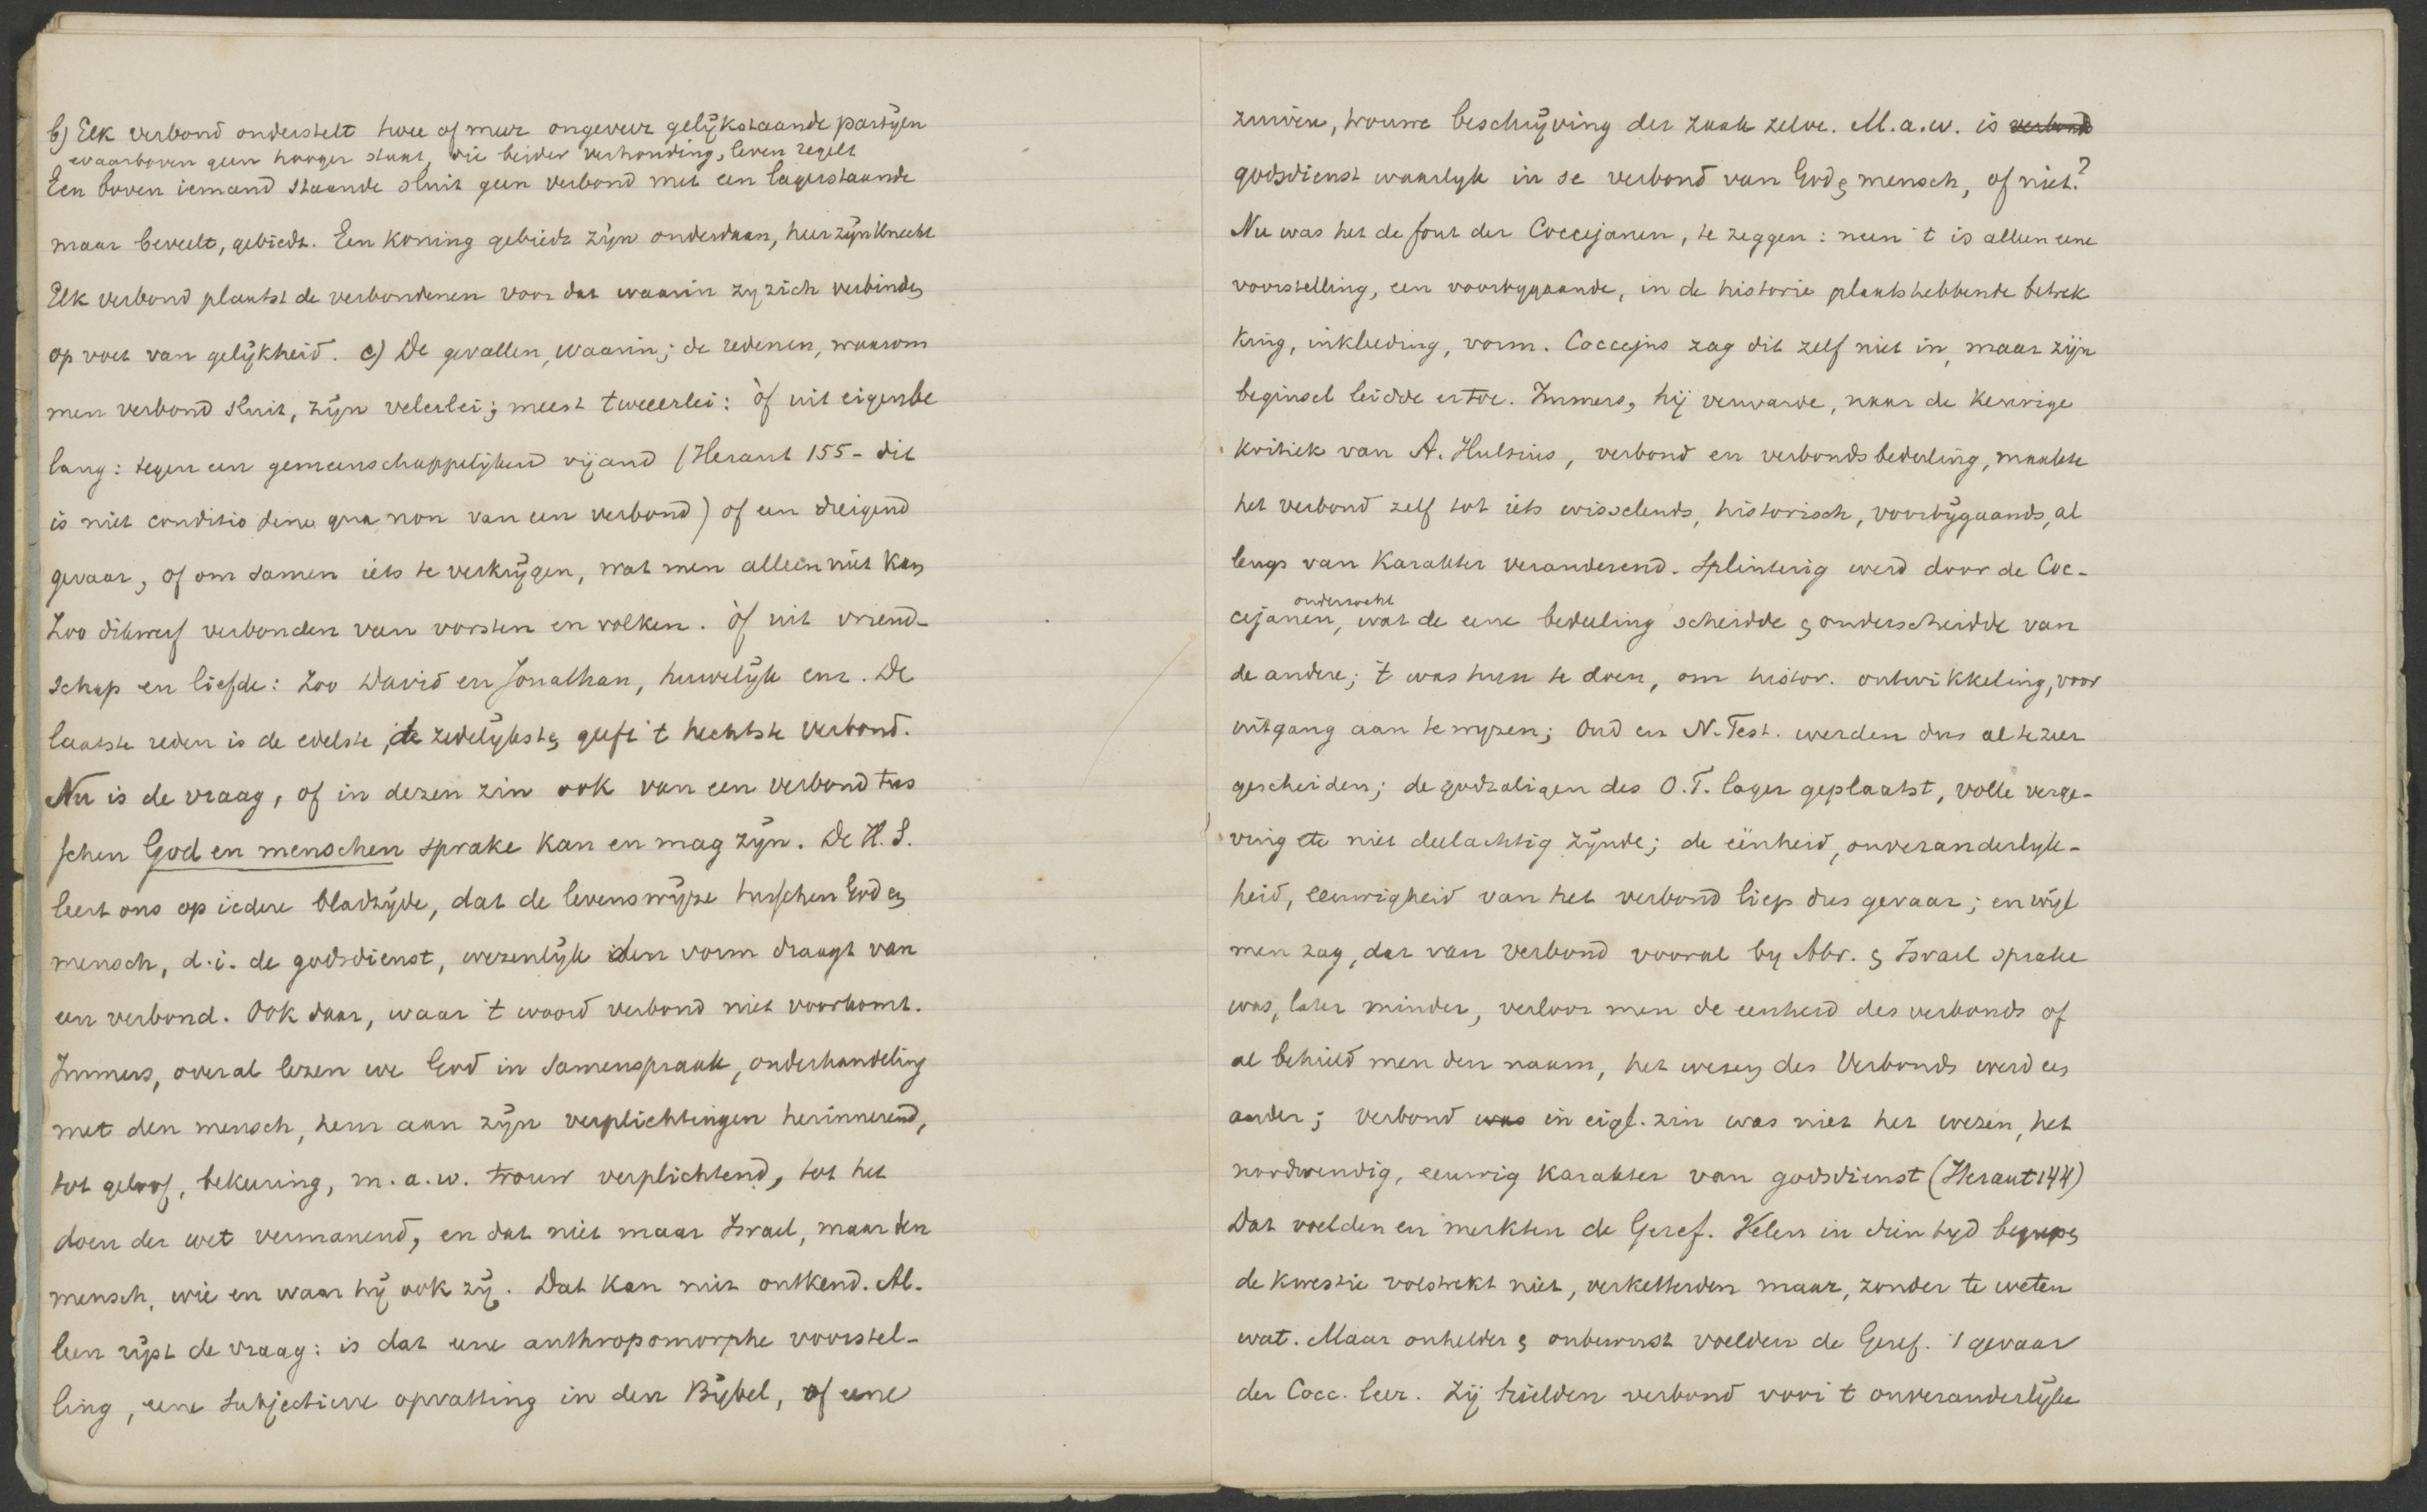 b) Elk verbond onderstelt twee of meer ongeveer gelijkstaande partijen
waarboven geen hooger staat, die beider verhouding, leven regelt
Een boven iemand staande sluit geen verbond met een lagerstaande
maar beveelt, gebiedt. Een koning gebiedt zijn onderdaan, heer zijn knecht
Elk verbond plaatst de verbondenen voor dat waarin zy zich verbinden
op voet van gelijkheid. c) De gevallen, waarin; de redenen, waarom
men verbond sluit, zijn velerlei; meest tweeerlei: òf uit eigenbe
lang: tegen een gemeenschappelijken vijand (Heraut 155 - dit
is niet conditio sine qua non van een verbond) of een dreigend
gevaar, of om samen iets te verkrijgen, wat men alleen niet kan
Zoo dikwerf verbonden van vorsten en volken. òf uit vriend-
schap en liefde: zoo David en Jonathan, huwelijk enz. De
laatste reden is de edelste, de zedelijkste, geeft 't hechtste verbond.
Nu is de vraag, of in dezen zin ook van een verbond tus
schen God en menschen sprake kan en mag zijn. De H. S.
leert ons op iedere bladzijde, dat de levenswijze tusschen God en
mensch, d.i. de godsdienst, wezenlijk den vorm draagt van
een verbond. Ook daar, waar 't woord verbond niet voorkomt.
Immers, overal lezen we God in samenspraak, onderhandeling
met den mensch, hem aan zijn verplichtingen herinnerend,
tot geloof, bekeering, m.a.w. trouw verplichtend, tot het
doen der wet vermanend, en dat niet maar Israel, maar den
mensch, wie en waar hij ook zij. Dat kan niet ontkend. Al-
leen rijst de vraag: is dat eene anthropomorphe voorstel-
ling, eene subjectieve opvatting in den Bijbel, of eene
zuivere, trouwe beschrijving der zaak zelve. M.a.w. is verbond
godsdienst waarlyk in se verbond van God & mensch, of niet?
Nu was het de fout der Coccejanen, te zeggen: neen 't is alleen eene
voorstelling, een voorbygaande, in de historie plaatshebbende betrek
king, inkleeding, vorm. Coccejus zag dit zelf niet in, maar zijn
beginsel leidde ertoe. Immers, hij verwarde, naar de keurige
kritiek van A. Hulsius, verbond en verbondsbedeeling, maakte
het verbond zelf tot iets wisselends, historisch, voorbijgaands, al
lengs van karakter veranderend. Splinterig werd door de Coc-
onderzocht
cejanen, wat de eene bedeeling scheidde & onderscheidde van
de andere; 't was hun te doen, om histor. ontwikkeling, voor
uitgang aan te wyzen; Oud en N. Test. werden dus al te zeer
gescheiden; de godzaligen des O.T. lager geplaatst, volle verge-
ving etc niet deelachtig zijnde; de eenheid, onveranderlyk-
heid, eeuwigheid van het verbond liep dus gevaar; en wijl
men zag, dat van verbond vooral by Abr. & Israel sprake
was, later minder, verloor men de eenheid des verbonds of
al behield men den naam, het wezen des Verbonds werd een
ander; verbond was in eigl. zin was niet het wezen, het
noodwendig, eeuwig karakter van godsdienst (Heraut 144)
Dat voelden en merkten de Geref. Velen in dien tyd begrepen
de kwestie volstrekt niet, verketterden maar, zonder te weten
wat. Maar onhelder & onbewust voelden de Geref. 't gevaar
der Cocc. leer. Zij hielden verbond voor 't onveranderlijke